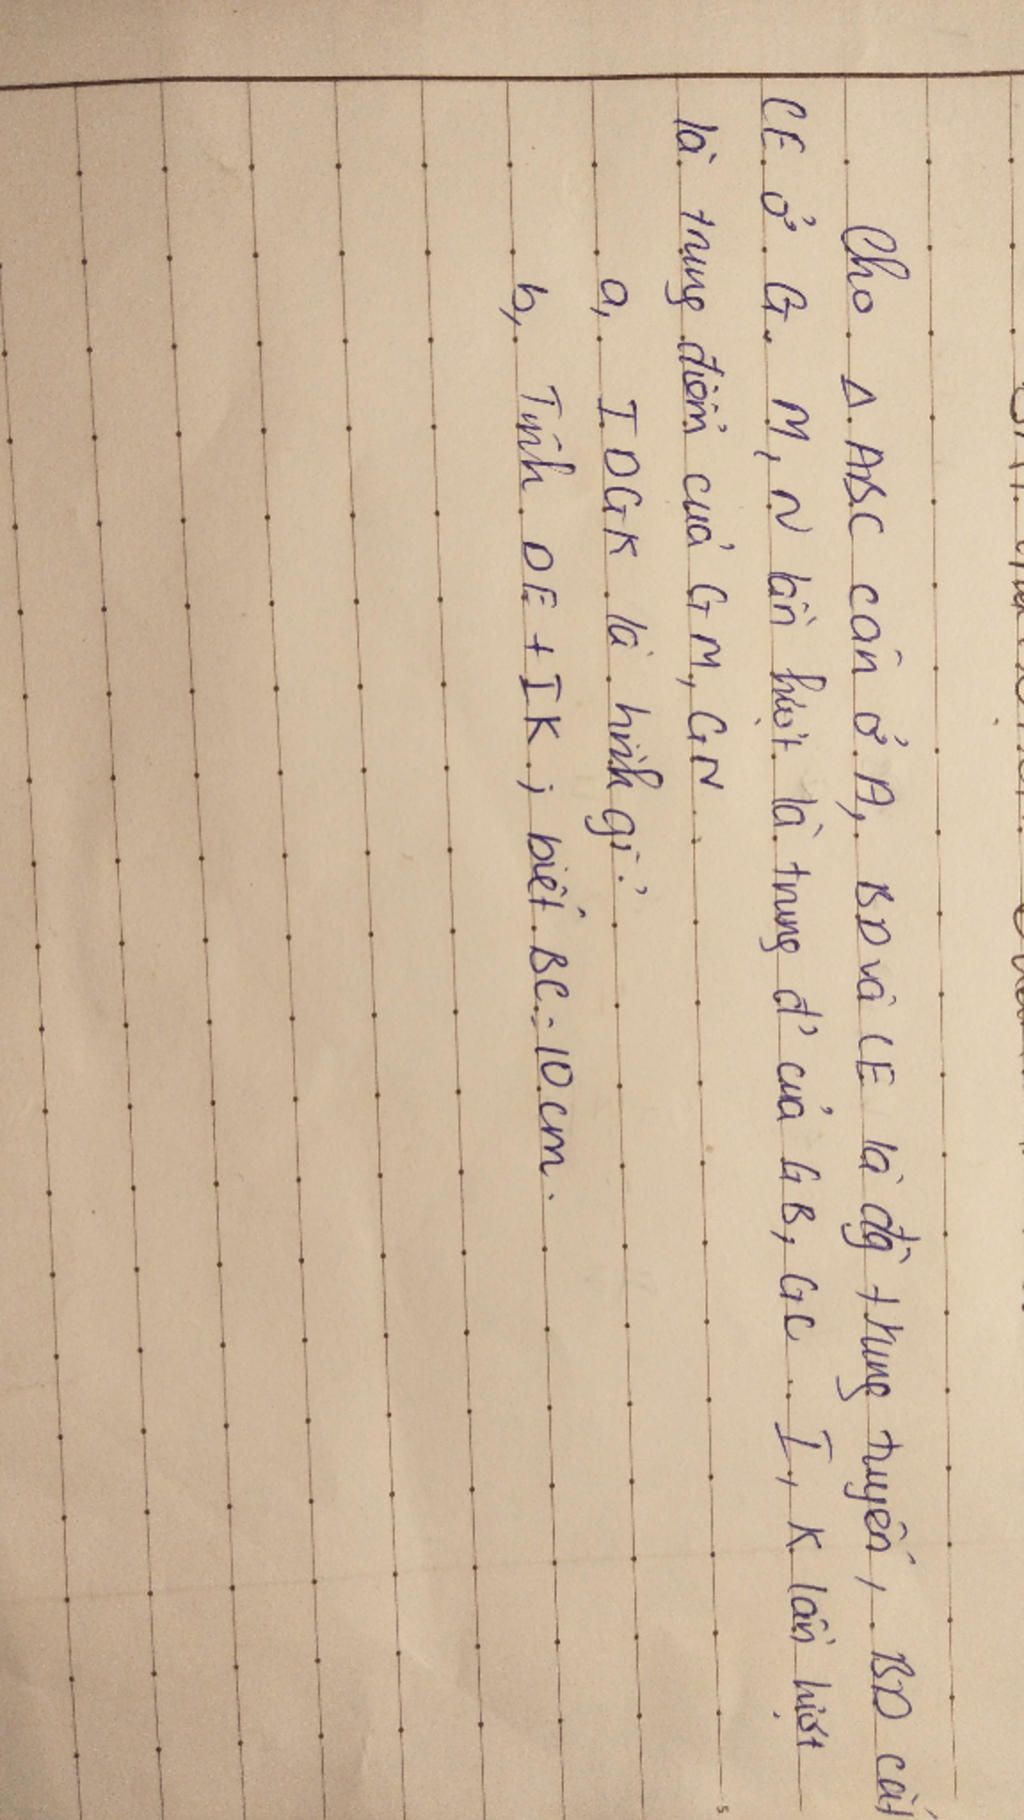 Cho Δ ABC cân ở A, BD và CE là đg̀ trung tuyến, BD cắt
CE ở G. M, N lần lượt là trung đ' của GB, GC. I, K lần lượt
là trung điểm của GM, GN.
a, IDGK là hình gì?
b, Tính DE + IK; biết BC = 10 cm.
5